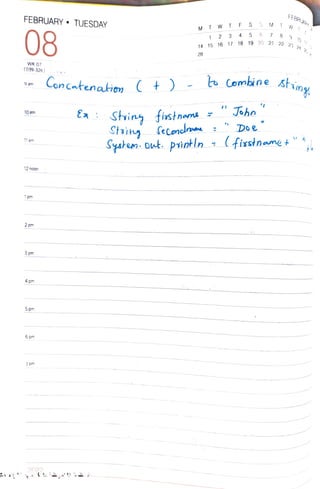 FEBRUARY • TUESDAY
FEBRUARY
08
M T W T F S S M T W
1 2 3 4 5 6 7 8 9
14 15 16 17 18 19 20 21 22 23 24
28
WK 07
9 am Concatenation ( + ) - to combine string
10 am Ex : String firstname = " John "
String secondname = " Doe "
11 am System. out. println = ( firstname + "
12 noon
1 pm
2 pm
3 pm
4 pm
5 pm
6 pm
7 pm